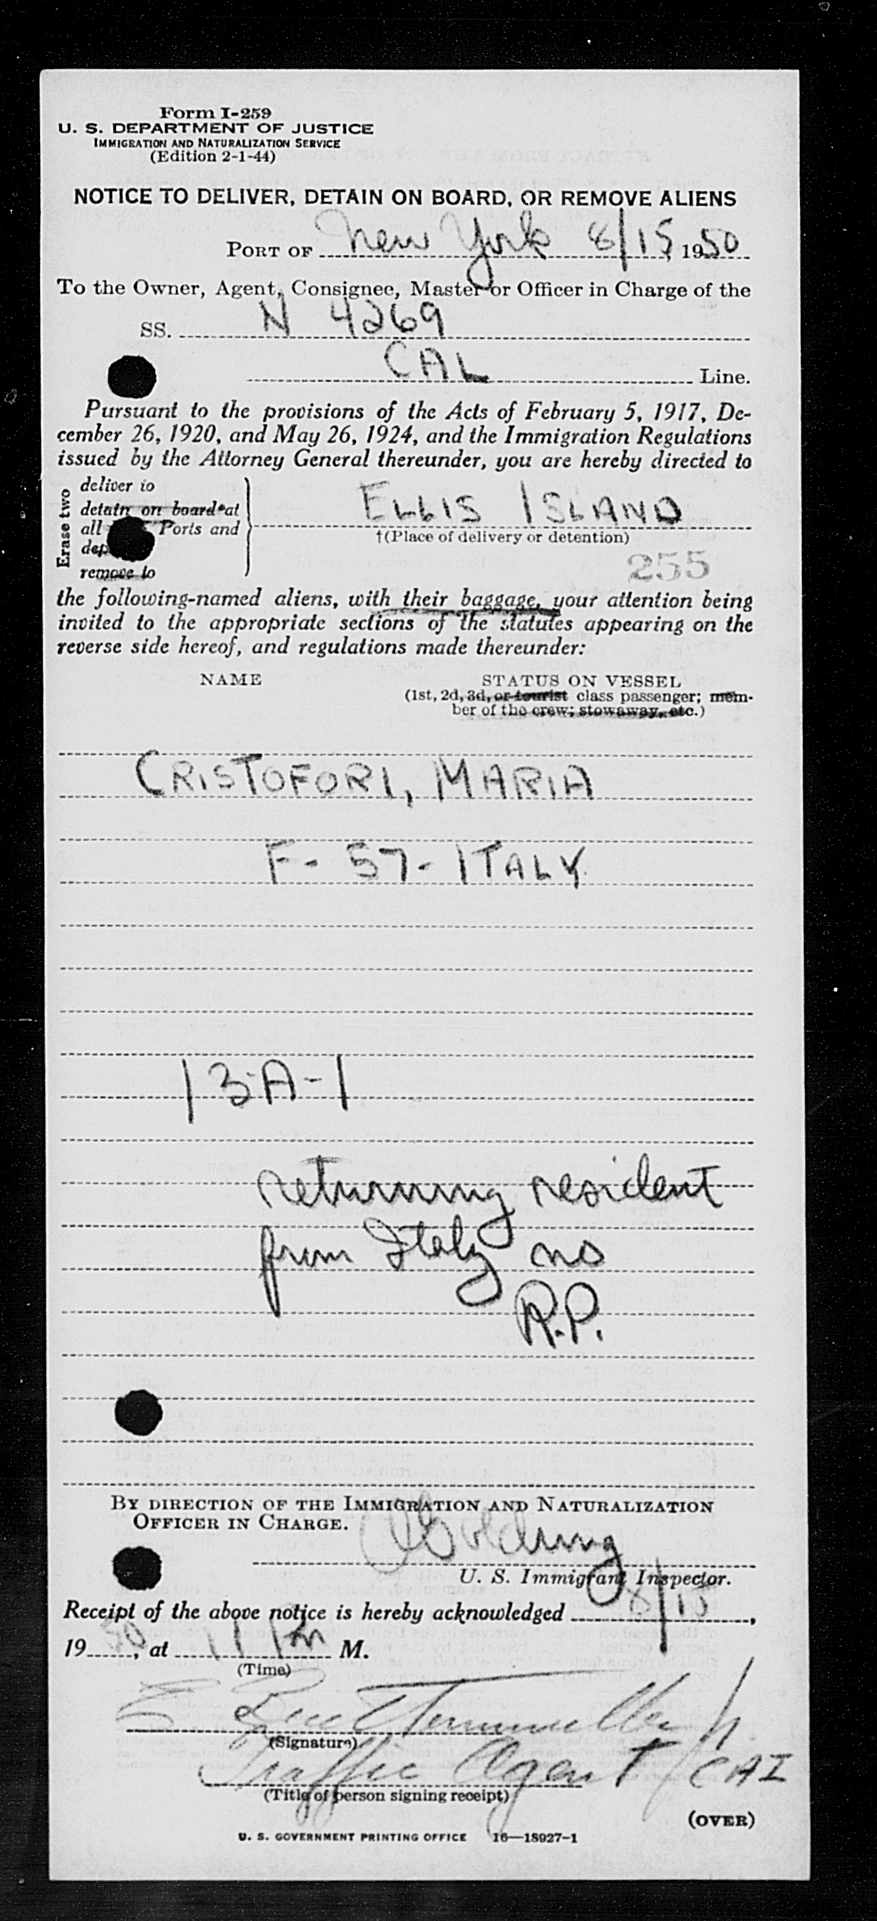 Form I-259
U. S. DEPARTMENT OF JUSTICE
IMMIGRATION AND NATURALIZATION SERVICE
(Edition 2-1-44)
NOTICE TO DELIVER, DETAIN ON BOARD, OR REMOVE ALIENS
PORT OF New York 8/15, 1950
To the Owner, Agent, Consignee, Master or Officer in Charge of the
SS. N 4269
CAL Line.
Pursuant to the provisions of the Acts of February 5, 1917, De-
cember 26, 1920, and May 26, 1924, and the Immigration Regulations
issued by the Attorney General thereunder, you are hereby directed to
Erase two
deliver to
detain on board*at
all Ports and
remove to
ELLIS ISLAND
†(Place of delivery or detention)
255
the following-named aliens, with their baggage, your attention being
invited to the appropriate sections of the statutes appearing on the
reverse side hereof, and regulations made thereunder:
NAME STATUS ON VESSEL
(1st, 2d, 3d, or tourist class passenger; mem-
ber of the crew; stowaway, etc.)
CRISTOFORI, MARIA
F - 57 - ITALY
13-A-1
returning resident
from Italy no
R.P.
BY DIRECTION OF THE IMMIGRATION AND NATURALIZATION
OFFICER IN CHARGE.
U. S. Immigrant Inspector.
Receipt of the above notice is hereby acknowledged 8/15,
1950, at M.
(Time)
(Signature)
Traffic Agent / CAI
(Title of person signing receipt)
(OVER)
U. S. GOVERNMENT PRINTING OFFICE 16—18927-1